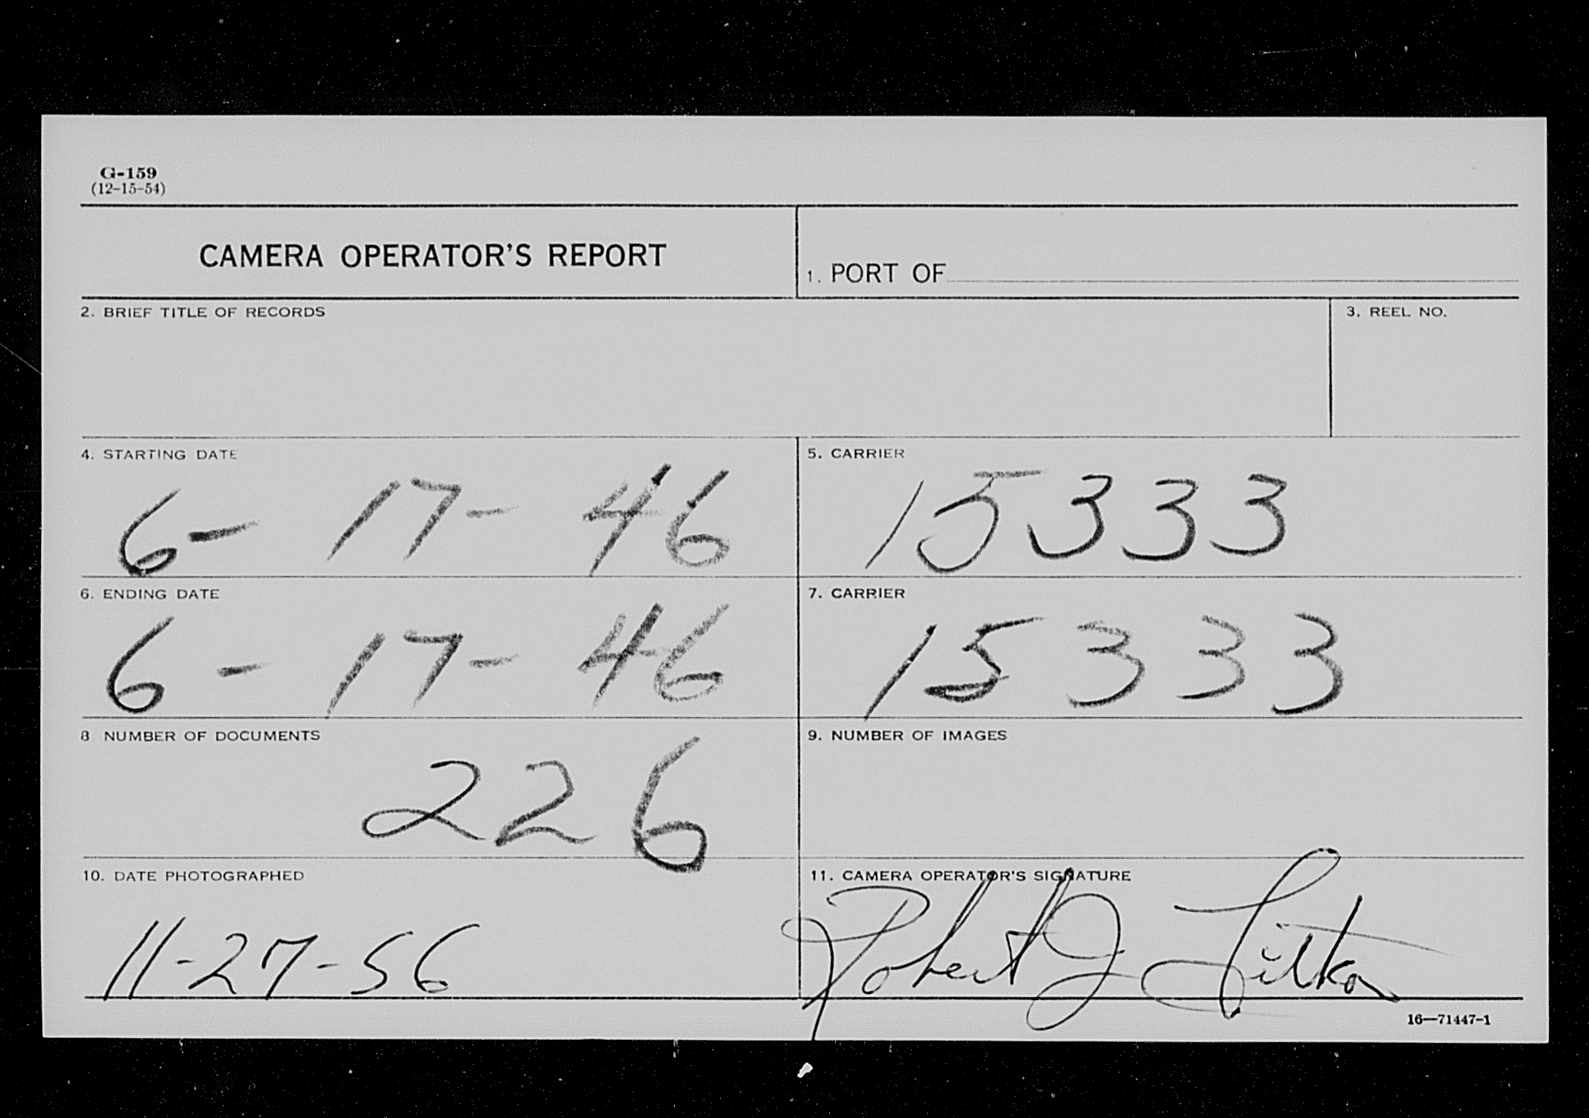 G-159
(12-15-54)
CAMERA OPERATOR'S REPORT
1. PORT OF
2. BRIEF TITLE OF RECORDS
3. REEL NO.
4. STARTING DATE
6- 17- 46
5. CARRIER
15333
6. ENDING DATE
6- 17- 46
7. CARRIER
15333
8 NUMBER OF DOCUMENTS
226
9. NUMBER OF IMAGES
10. DATE PHOTOGRAPHED
11-27-56
11. CAMERA OPERATOR'S SIGNATURE
Robert J
16—71447-1